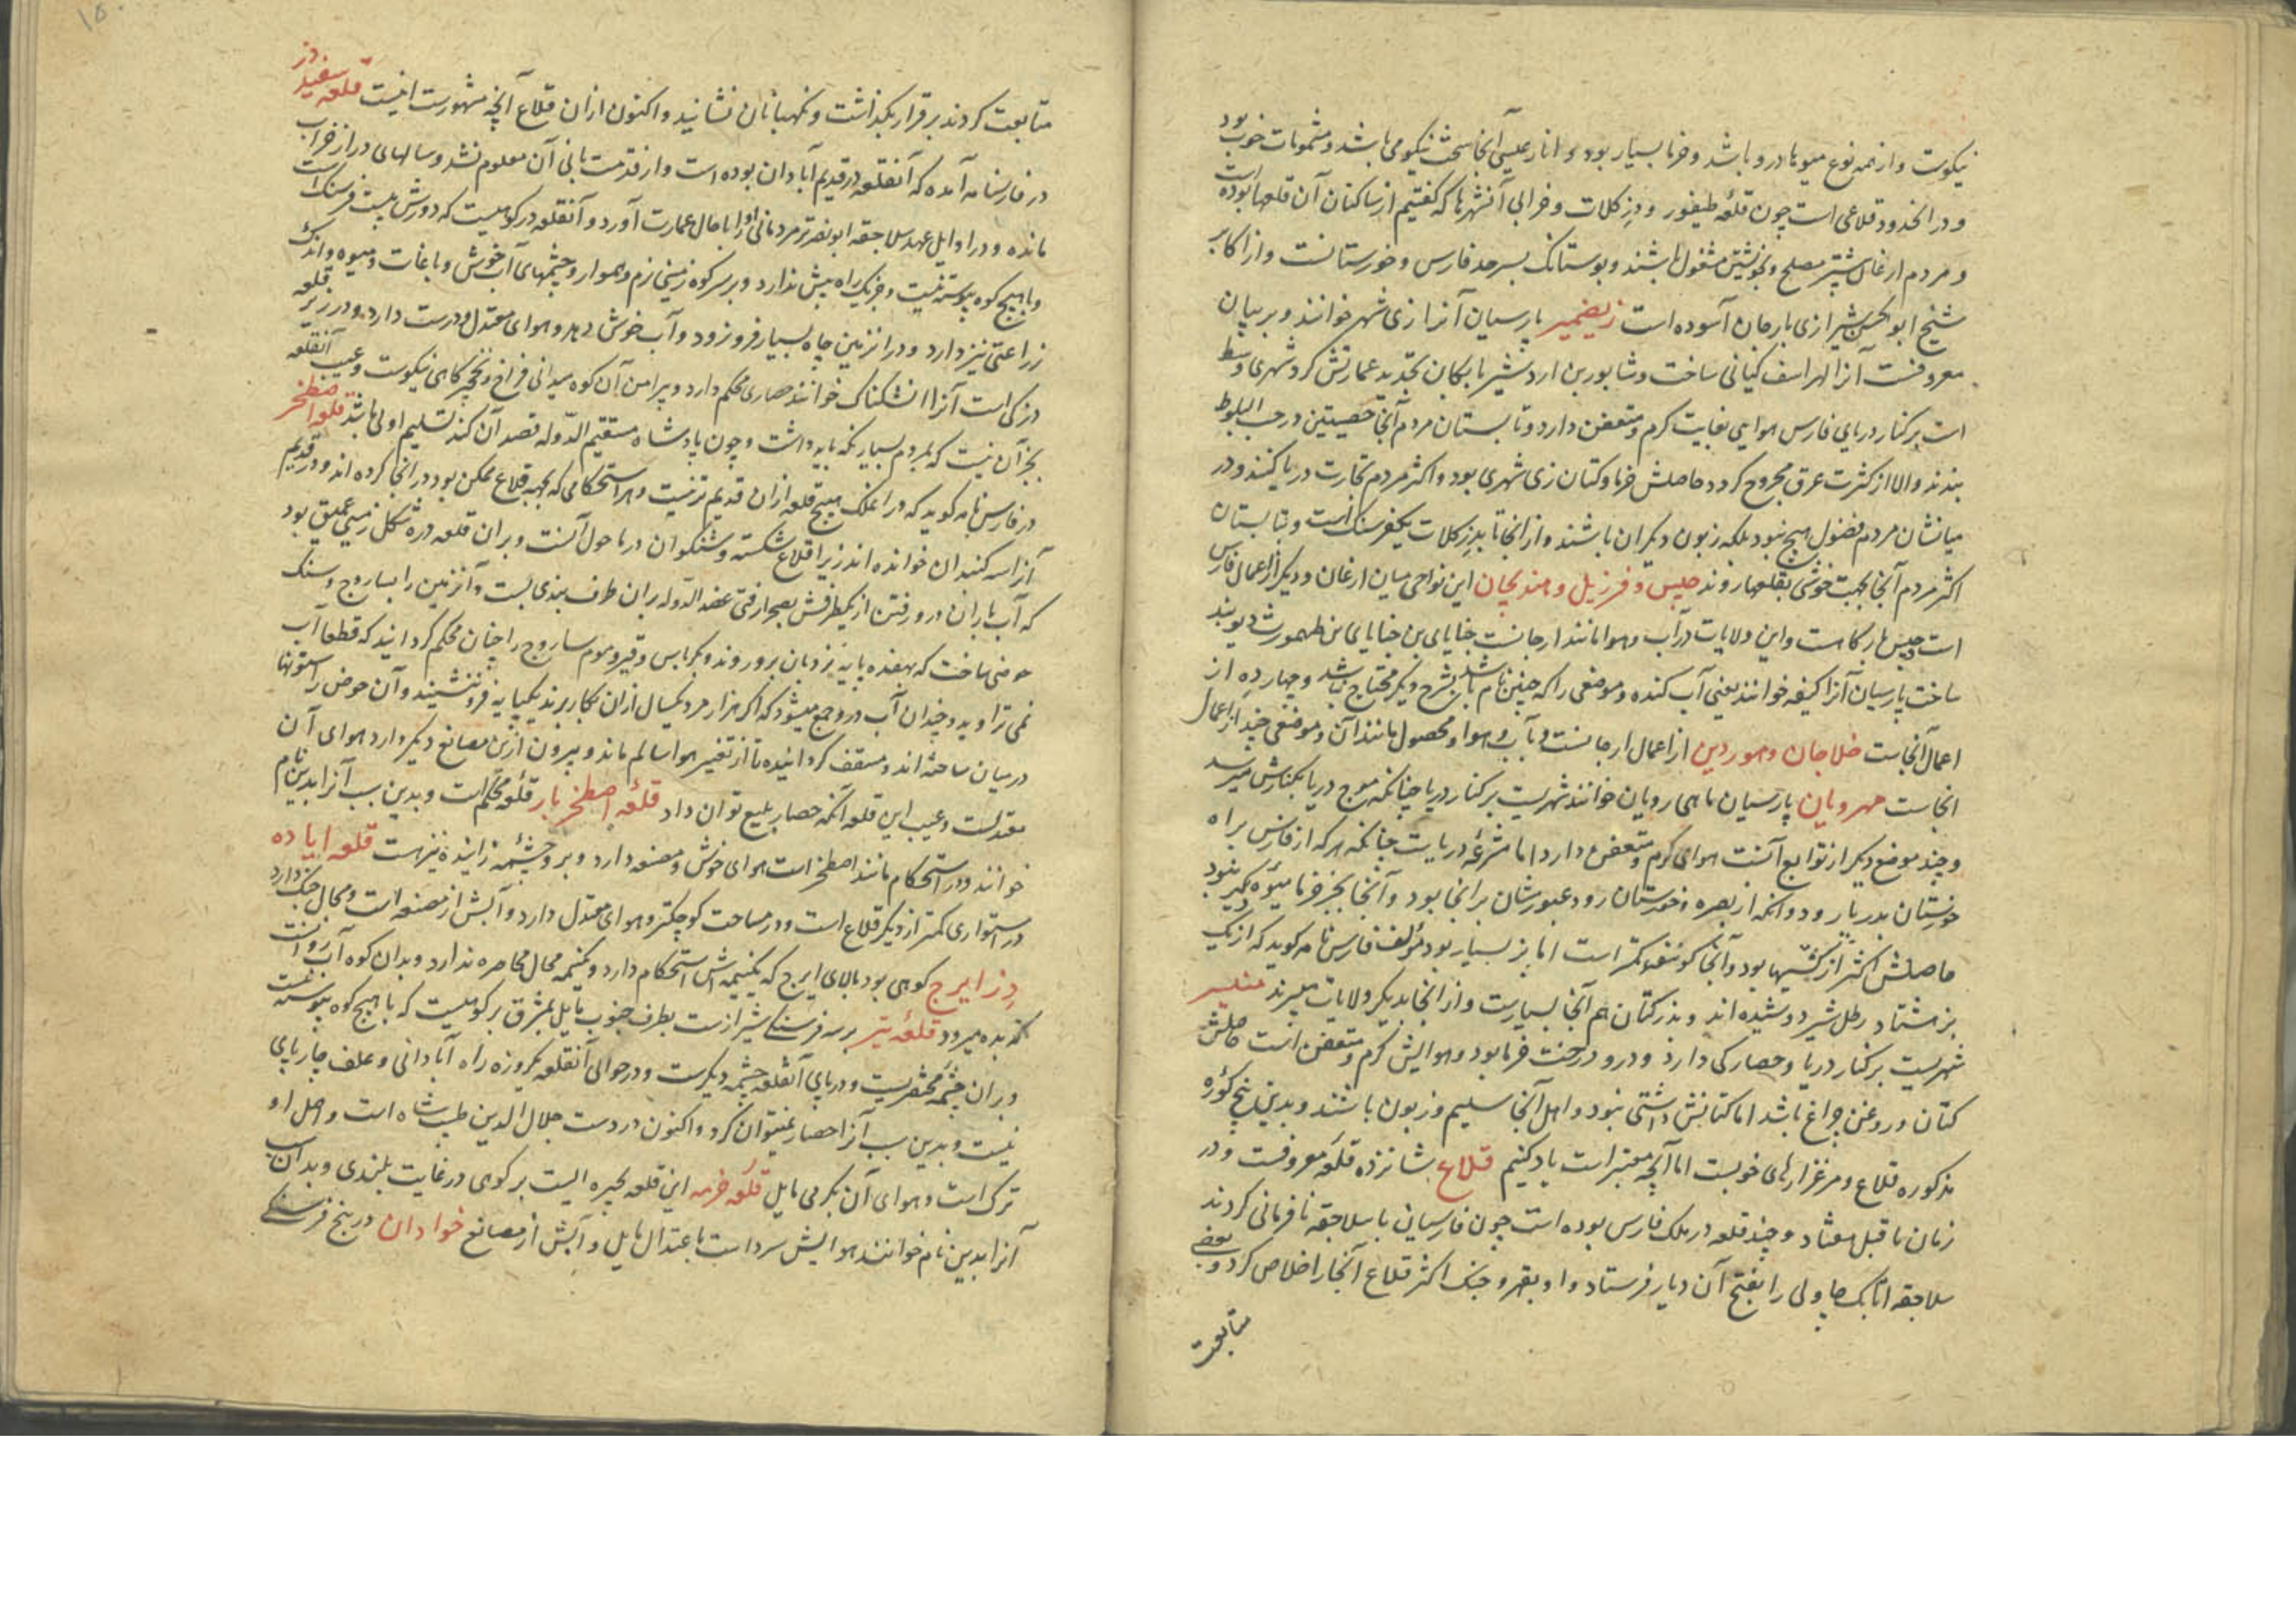 نیکوست و از همه نوع میوها درو باشد و خرما بسیار بود و انار عیسی آنجا سخت نیکو می باشد و مشمومات خوب بود
و در آنحدود قلاعی است چون قلعه طیفور و دز کلات و خرابی آنشهر ها که گفتیم از ساکنان آن قلعها بوده است
و مردم ارغان بیشتر مصلح و بخویشتن مشغول باشند و بوستانک بسرحد فارس و خوزستانست و از اکابر
شیخ ابو الحسن شیرازی بارجان آسوده است ریضمیر پارسیان آنرا زی شهر خوانند و بر بیان
معروفست آنرا لهراسف کیانی ساخت و شابور بن اردشیر بابکان تجدید عمارتش کرد شهری وسط
است بر کنار دریای فارس هوایی بغایت گرم و متعفن دارد و تابستان مردم آنجا خصیتین در جب البلوط
بندند و الا از کثرت عرق مجروح گردد حاصلش خرما و کتان زی شهری بود و اکثر مردم تجارت دریا کنند و در
میانشان مردم فضول هیچ نبود بلکه زبون دیگران باشند و از آنجا تا بدز کلات یکفرسنگ است و بتابستان
اکثر مردم آنجا بجهت خوشی بقلعها روند جیس و فرزیل و هندیجان این نواحی میان ارغان و دیگر از اعمال فارس
است جیس بارگاهست و این ولایات در آب و هوا مانند ارجانست
ساخت پارسیان آنرا خوانند یعنی آب کنده و موضعی را که چنین نام باشد بشرح دیگر محتاج نباشد و چهار ده از
اعمال آنجاست خلاجان و هوردین از اعمال ارجانست و بآب و هوا و محصول مانند آن و موضعی چند از اعمال
آنجاست مهروبان پارسیان ماهی رویان خوانند شهریست بر کنار دریا چنانکه موج دریا بکنارش میرسد
و چند موضع دیگر از توابع آنست هوای گرم و متعفن دارد اما مشرعه دریاست چنانکه هر که از فارس براه
خوزستان بدریا رود و آنکه از بصره و خوزستان رود عبورشان بر آنجا بود و آنجا بجز خرما میوه دیگر نبود
حاصلش اکثر از کشتیها بود و آنجا گوسفند کمتر است اما بز بسیار بود مؤلف فارس نامه گوید که از یک
بز هشتاد رطل شیر دوشیده اند و بذر کتان هم آنجا بسیارست و از آنجا بدیگر ولایات میبرند
شهریست بر کنار دریا و حصارکی دارد و درو درخت خرما بود و هوایش گرم و متعفن است حاصلش
کتان و روغن چراغ باشد اما کتانش داشتی نبود و اهل آنجا سلیم و زبون باشند و بدین پنج کوره
مذکوره قلاع و مرغزارهای خوبست اما آنچه معتبر است یاد کنیم قلاع بشانزده قلعه معروفست و در
زمان ما قبل هفتاد و چند قلعه در ملک فارس بوده است چون فارسیان با سلاجقه نافرمانی کردند
سلاجقه اتابک چاولی را بفتح آن دیار فرستاد و او بقهر و جنگ اکثر قلاع آنجا را خلاص کرد و بعضی
متابعت
متابعت کردند بر قرار بگذاشت و نگهبانان نشانید و اکنون از آن قلاع آنچه مشهورست اینست قلعه سفید دز
در فارسنامه آمده که آنقلعه در قدیم آبادان بوده است و از قدمت بانی آن معلوم نشد و سالهای دراز خراب
مانده و در اوایل عهد سلاجقه ابو نصر تیر مردانی او را با حال عمارت آورد و آنقلعه در کوهیست که دورش بیست فرسنگ است
و با هیچ کوه پیوسته نیست و جز یک راه بیش ندارد و بر سر کوه زمینی نرم و هموار و چشمهای آب خوش و باغات و میوه و اندک
زراعتی نیز دارد و در آنزمین چاه بسیار فرو رود و آب خوش دهد و هوای معتدل و درست دارد و در زیر قلعه
دزکی است آنرا نشکناک خوانند حصاری محکم دارد و پیرامن آن کوه میدانی فراخ و نخچیرگاهی نیکوست و عیب آنقلعه
بجز آن نیست که بمردم بسیار نگه باید داشت و چون پادشاه مستقیم الدوله قصد آن کند تسلیم اولی باشد قلعه اصطخر
در فارس نامه گوید که در آن ملک هیچ قلعه از آن قدیم تر نیست و هر استحکامی که بجهة قلاع ممکن بود در آنجا کرده اند و در قدیم
آنرا سه گنبدان خوانده اند زیرا قلاع شکسته و شنکوان در ما حول آنست و بر آن قلعه دره شکل زمینی عمیق بود
که آب باران درو رفتن از یکطرفش بصحرا رفتی عضد الدوله بر آن طرف بندی بست و آنزمین را بساروج و سنگ
حوضی ساخت که بهفده پایه نردبان برو روند و بکرباس و قیر و موم ساروج را چنان محکم گردانیدند که قطعا آب
نمی تراوید و چندان آب درو جمع میشود که اگر هزار مرد یکسال از آن بکار برند یکپایه فرو ننشیند و آن حوض را ستونها
در میان ساخته اند و مسقف گردانیده تا از تغییر هوا سالم ماند و بیرون ازین مصانع دیگر دارد هوای آن
معتدلست و عیب این قلعه آنکه حصار بلیغ توان داد قلعه اصطخر یار قلعه محکم است و بدین سبب آنرا بدین نام
خوانند و در استحکام مانند اصطخر است هوای خوش و مصنعه دارد و برو چشمه زاینده نیز هست قلعه اباده
در استواری کمتر از دیگر قلاع است و در مساحت کوچکتر و هوای معتدل دارد و آبش از مصنعه است و مجال جنگ دارد
دز ایرج کوهی بود بالای ایرج که یکنیمه اش استحکام دارد و یکنیمه مجال محاصره ندارد و بدان کوه آب روانست
که بده میرود قلعه تیر بر سه فرسنگی شیرازست بطرف جنوب مایل بمشرق بر کوهیست که با هیچ کوه پیوسته نیست
و بر آن چشمه مختصریست و در پای آنقلعه چشمه دیگرست و در حوالی آنقلعه یکروزه راه آبادانی و علف چارپای
نیست و بدین سبب آنرا حصار نمیتوان کرد و اکنون در دست جلال الدین طیب شاه است و اصل او
ترک است و هوای آن بگرمی مایل قلعه خرمه این قلعه بحیره ایست بر کوهی در غایت بلندی و بدان سبب
آنرا بدین نام خوانند هوایش سرد است باعتدال مایل و آبش از مصانع خوادان در پنج فرسنگی